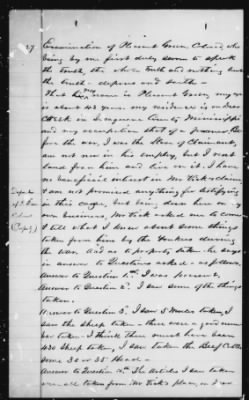 27 Examination of Plesent Green, Colored, who
being by me first duly sworn to speak
the truth, the whole truth and nothing but
the truth - deposes and saith -
That his name is Plesent Green, my age
is about 43 years. my residence is
Creek in County Mississippi
and my occupation that of a farmer. Be-
fore the war, I was the Slave of Claimant,
am not now in his employ, but I rent
land from him and live on it. I have
no beneficial interest in Mr claim
& am not promised anything for testifying
in this cause, but being down here on my
own business, Mr asked me to come
& tell what I know about some things
taken from him by the Yankees during
the war. And as to property taken he says
in answer to Questions asked - as follows
Answer to Question 1st. I was present.
Answer to Question 2d. I saw some of the things
taken.
Answer to Question 3d. I saw 5 Mules taken, I
saw the sheep taken - there were a good num-
ber taken - I think there must have been
430 Sheep taken, I saw taken the Beef Cattle
some 30 or 35 Head -
Answer to Question 4th. The Articles I saw taken
were all taken from Mr plan, or